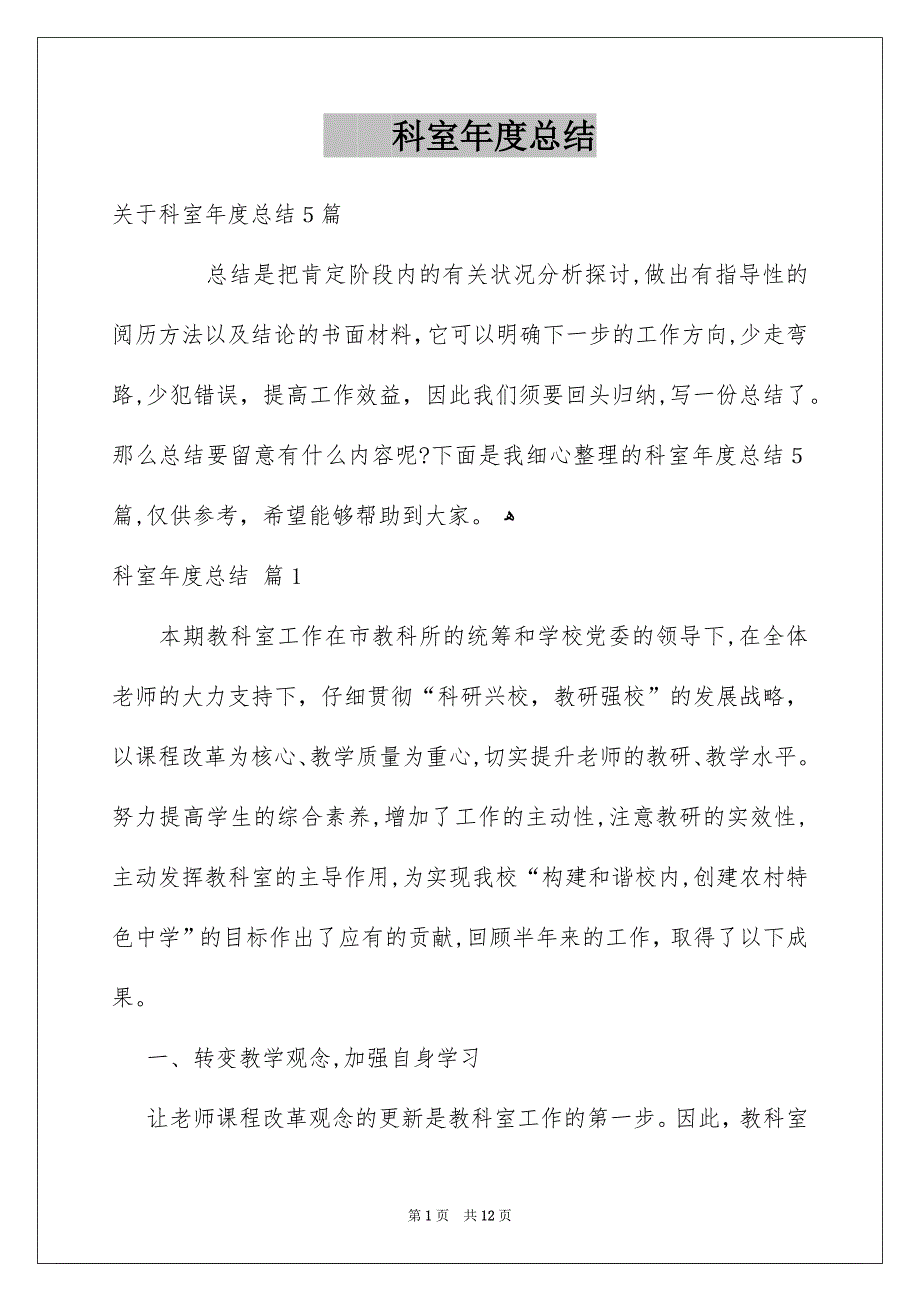 科室年度总结
关于科室年度总结5篇
总结是把肯定阶段内的有关状况分析探讨,做出有指导性的
阅历方法以及结论的书面材料，它可以明确下一步的工作方向,少走弯
路,少犯错误，提高工作效益，因此我们须要回头归纳,写一份总结了。
那么总结要留意有什么内容呢?下面是我细心整理的科室年度总结5
篇,仅供参考，希望能够帮助到大家。 ﻫ
科室年度总结 篇1
本期教科室工作在市教科所的统筹和学校党委的领导下,在全体
老师的大力支持下，仔细贯彻“科研兴校，教研强校”的发展战略，
以课程改革为核心、教学质量为重心,切实提升老师的教研、教学水平。
努力提高学生的综合素养,增加了工作的主动性,注意教研的实效性,
主动发挥教科室的主导作用,为实现我校“构建和谐校内,创建农村特
色中学”的目标作出了应有的贡献,回顾半年来的工作，取得了以下成
果。
一、转变教学观念,加强自身学习
让老师课程改革观念的更新是教科室工作的第一步。因此，教科室
第1页 共12页